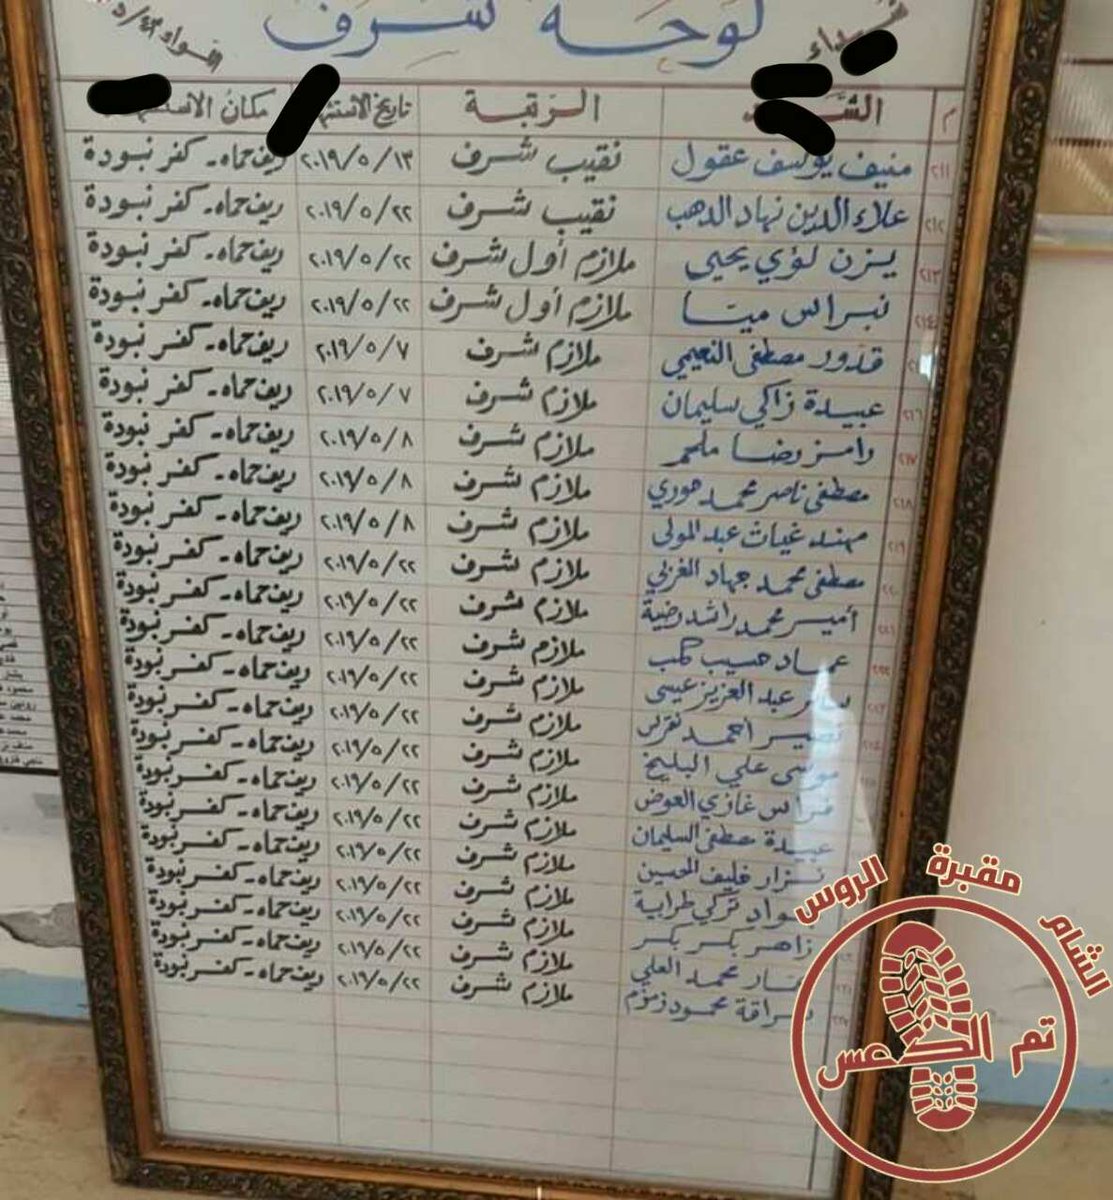 لوحة شرف
اللواء ٤٣/د
م الرتبة تاريخ مكان
٢١١ منيف يوسف عقول نقيب شرف ٢٠١٩/٥/١٣ ريف حماه - كفر نبودة
٢١٢ علاء الدين نهاد الدهب نقيب شرف ٢٠١٩/٥/٢٢ ريف حماه - كفر نبودة
٢١٣ يزن لؤي يحيى ملازم أول شرف ٢٠١٩/٥/٢٢ ريف حماه - كفر نبودة
٢١٤ نبراس ميا ملازم أول شرف ٢٠١٩/٥/٢٢ ريف حماه - كفر نبودة
قدور مصطفى النعيمي ملازم شرف ٢٠١٩/٥/٧ ريف حماه - كفر نبودة
٢١٦ عبيدة زاكي سليمان ملازم شرف ٢٠١٩/٥/٧ ريف حماه - كفر نبودة
٢١٧ رامز رضا ملحم ملازم شرف ٢٠١٩/٥/٨ ريف حماه - كفر نبودة
٢١٨ مصطفى ناصر محمد حوري ملازم شرف ٢٠١٩/٥/٨ ريف حماه - كفر نبودة
٢١٩ مهند غياث عبد المولى ملازم شرف ٢٠١٩/٥/٨ ريف حماه - كفر نبودة
٢٢٠ مصطفى محمد جهاد الغزي ملازم شرف ٢٠١٩/٥/٢٢ ريف حماه - كفر نبودة
٢٢١ أمير محمد راشد رضية ملازم شرف ٢٠١٩/٥/٢٢ ريف حماه - كفر نبودة
٢٢٢ عماد حسيب ملازم شرف ٢٠١٩/٥/٢٢ ريف حماه - كفر نبودة
٢٢٣ عبد العزيز عيسى ملازم شرف ٢٠١٩/٥/٢٢ ريف حماه - كفر نبودة
نصير احمد ملازم شرف ٢٠١٩/٥/٢٢ ريف حماه - كفر نبودة
موسى علي البليخ ملازم شرف ٢٠١٩/٥/٢٢ ريف حماه - كفر نبودة
فراس غازي العوض ملازم شرف ٢٠١٩/٥/٢٢ ريف حماه - كفر نبودة
عبيدة مصطفى السليمان ملازم شرف ٢٠١٩/٥/٢٢ ريف حماه - كفر نبودة
نزار خليف الحسين ملازم شرف ٢٠١٩/٥/٢٢ ريف حماه - كفر نبودة
تركي طراية ملازم شرف ٢٠١٩/٥/٢٢ ريف حماه - كفر نبودة
زاهر بكر بكر ملازم شرف ٢٠١٩/٥/٢٢ ريف حماه - كفر نبودة
محمد العلي ملازم شرف ٢٠١٩/٥/٢٢ ريف حماه - كفر نبودة
سراقة محمود زمزم ملازم شرف ٢٠١٩/٥/٢٢ ريف حماه - كفر نبودة
الشام مقبرة الروس
تم الدعس